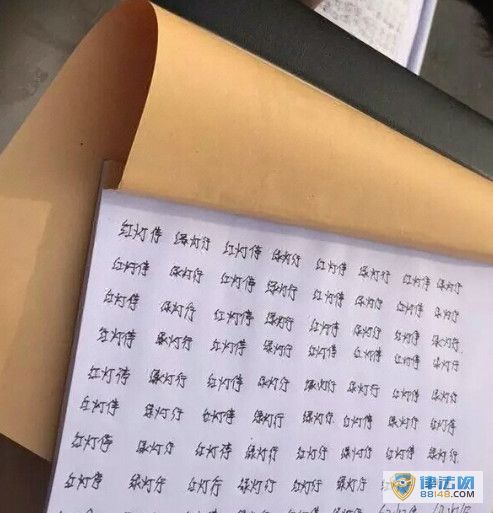 红灯停 绿灯行 红灯停 绿灯行 红灯停 绿灯行 红灯停 绿灯行
红灯停 绿灯行 红灯停 绿灯行 红灯停 绿灯行 红灯停 绿灯行
红灯停 绿灯行 红灯停 绿灯行 红灯停 绿灯行 红灯停 绿灯行
红灯停 绿灯行 红灯停 绿灯行 红灯停 绿灯行 红灯停 绿灯行
红灯停 绿灯行 红灯停 绿灯行 红灯停 绿灯行 红灯停 绿灯行
红灯停 绿灯行 红灯停 绿灯行 红灯停 绿灯行 红灯停 绿灯行
红灯停 绿灯行 红灯停 绿灯行 红灯停 绿灯行 红灯停 绿灯行
红灯停 绿灯行 红灯停 绿灯行 红灯停 绿灯行
律法网
88148.COM